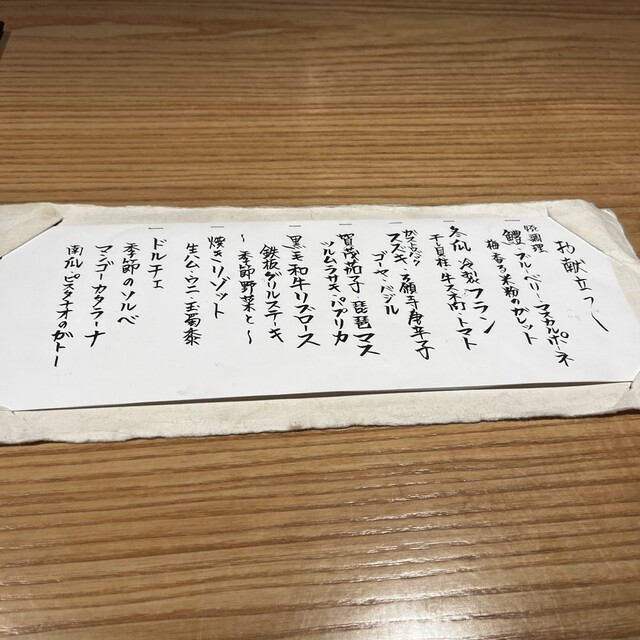 お献立つくし
一 鱧・ブルーベリー・マスカルポーネ
梅香る米粉のガレット
一 冬瓜 冷製フラン
干し貝柱・牛スネ肉・トマト
スズキ・万願寺唐辛子
ゴーヤ・バジル
一 賀茂茄子・琵琶マス
ツルムラサキ・パプリカ
一 黒毛和牛リブロース
鉄板グリルステーキ
〜季節野菜と〜
一 焼きリゾット
生ハム・ウニ・玉蜀黍
一 ドルチェ
季節のソルベ
マンゴーカタラーナ
南瓜・ピスタチオのガトー